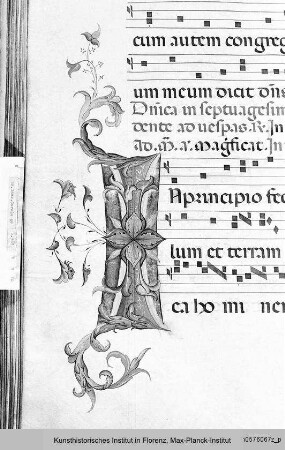 cum autem congreg
um meum dicit dn̄s
Dn̄ica in septuagesim
dente ad vespas. R. In
ad. m̄. a. magficat. In
Nprincipio fec
lum et terram
ca ho mi nem
Kunsthistorisches Institut in Florenz, Max-Planck-Institut